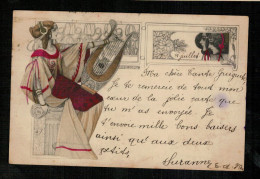 Juillet
Ma chère Tante Jacques
Je te remercie de tout mon
cœur de la jolie carte que
tu m'as envoyée. Je
t'envoie mille bons baisers
ainsi que aux deux
petits,
Suzanne